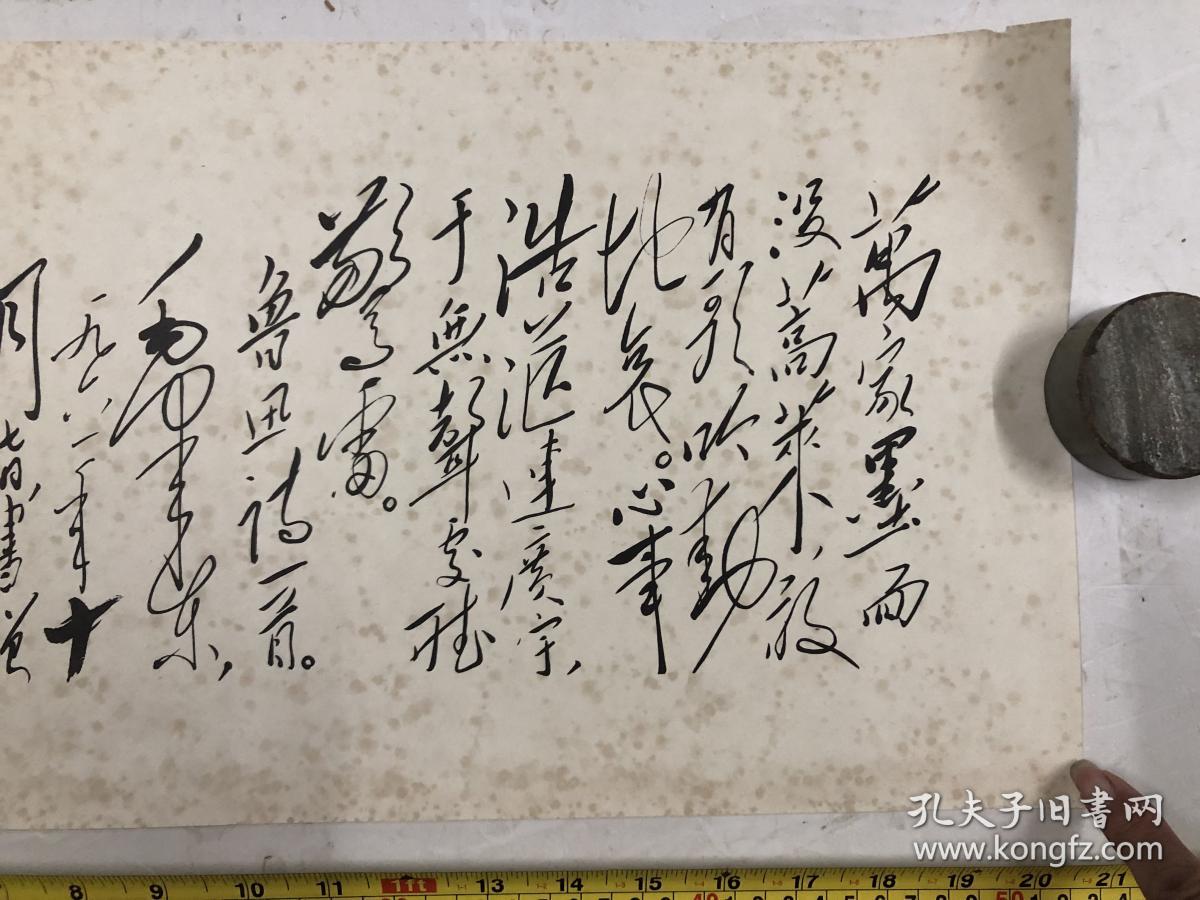 萬家墨面
没蒿萊，敢
有歌吟動
地哀。心事
浩茫連廣宇，
于無聲處聽
驚雷。
魯迅诗一首。
毛澤东，
一九六一年十
月七日，書贈
孔夫子旧書网
www.kongfz.com
8 9 10 11 1ft 13 14 15 16 17 18 19 20 21